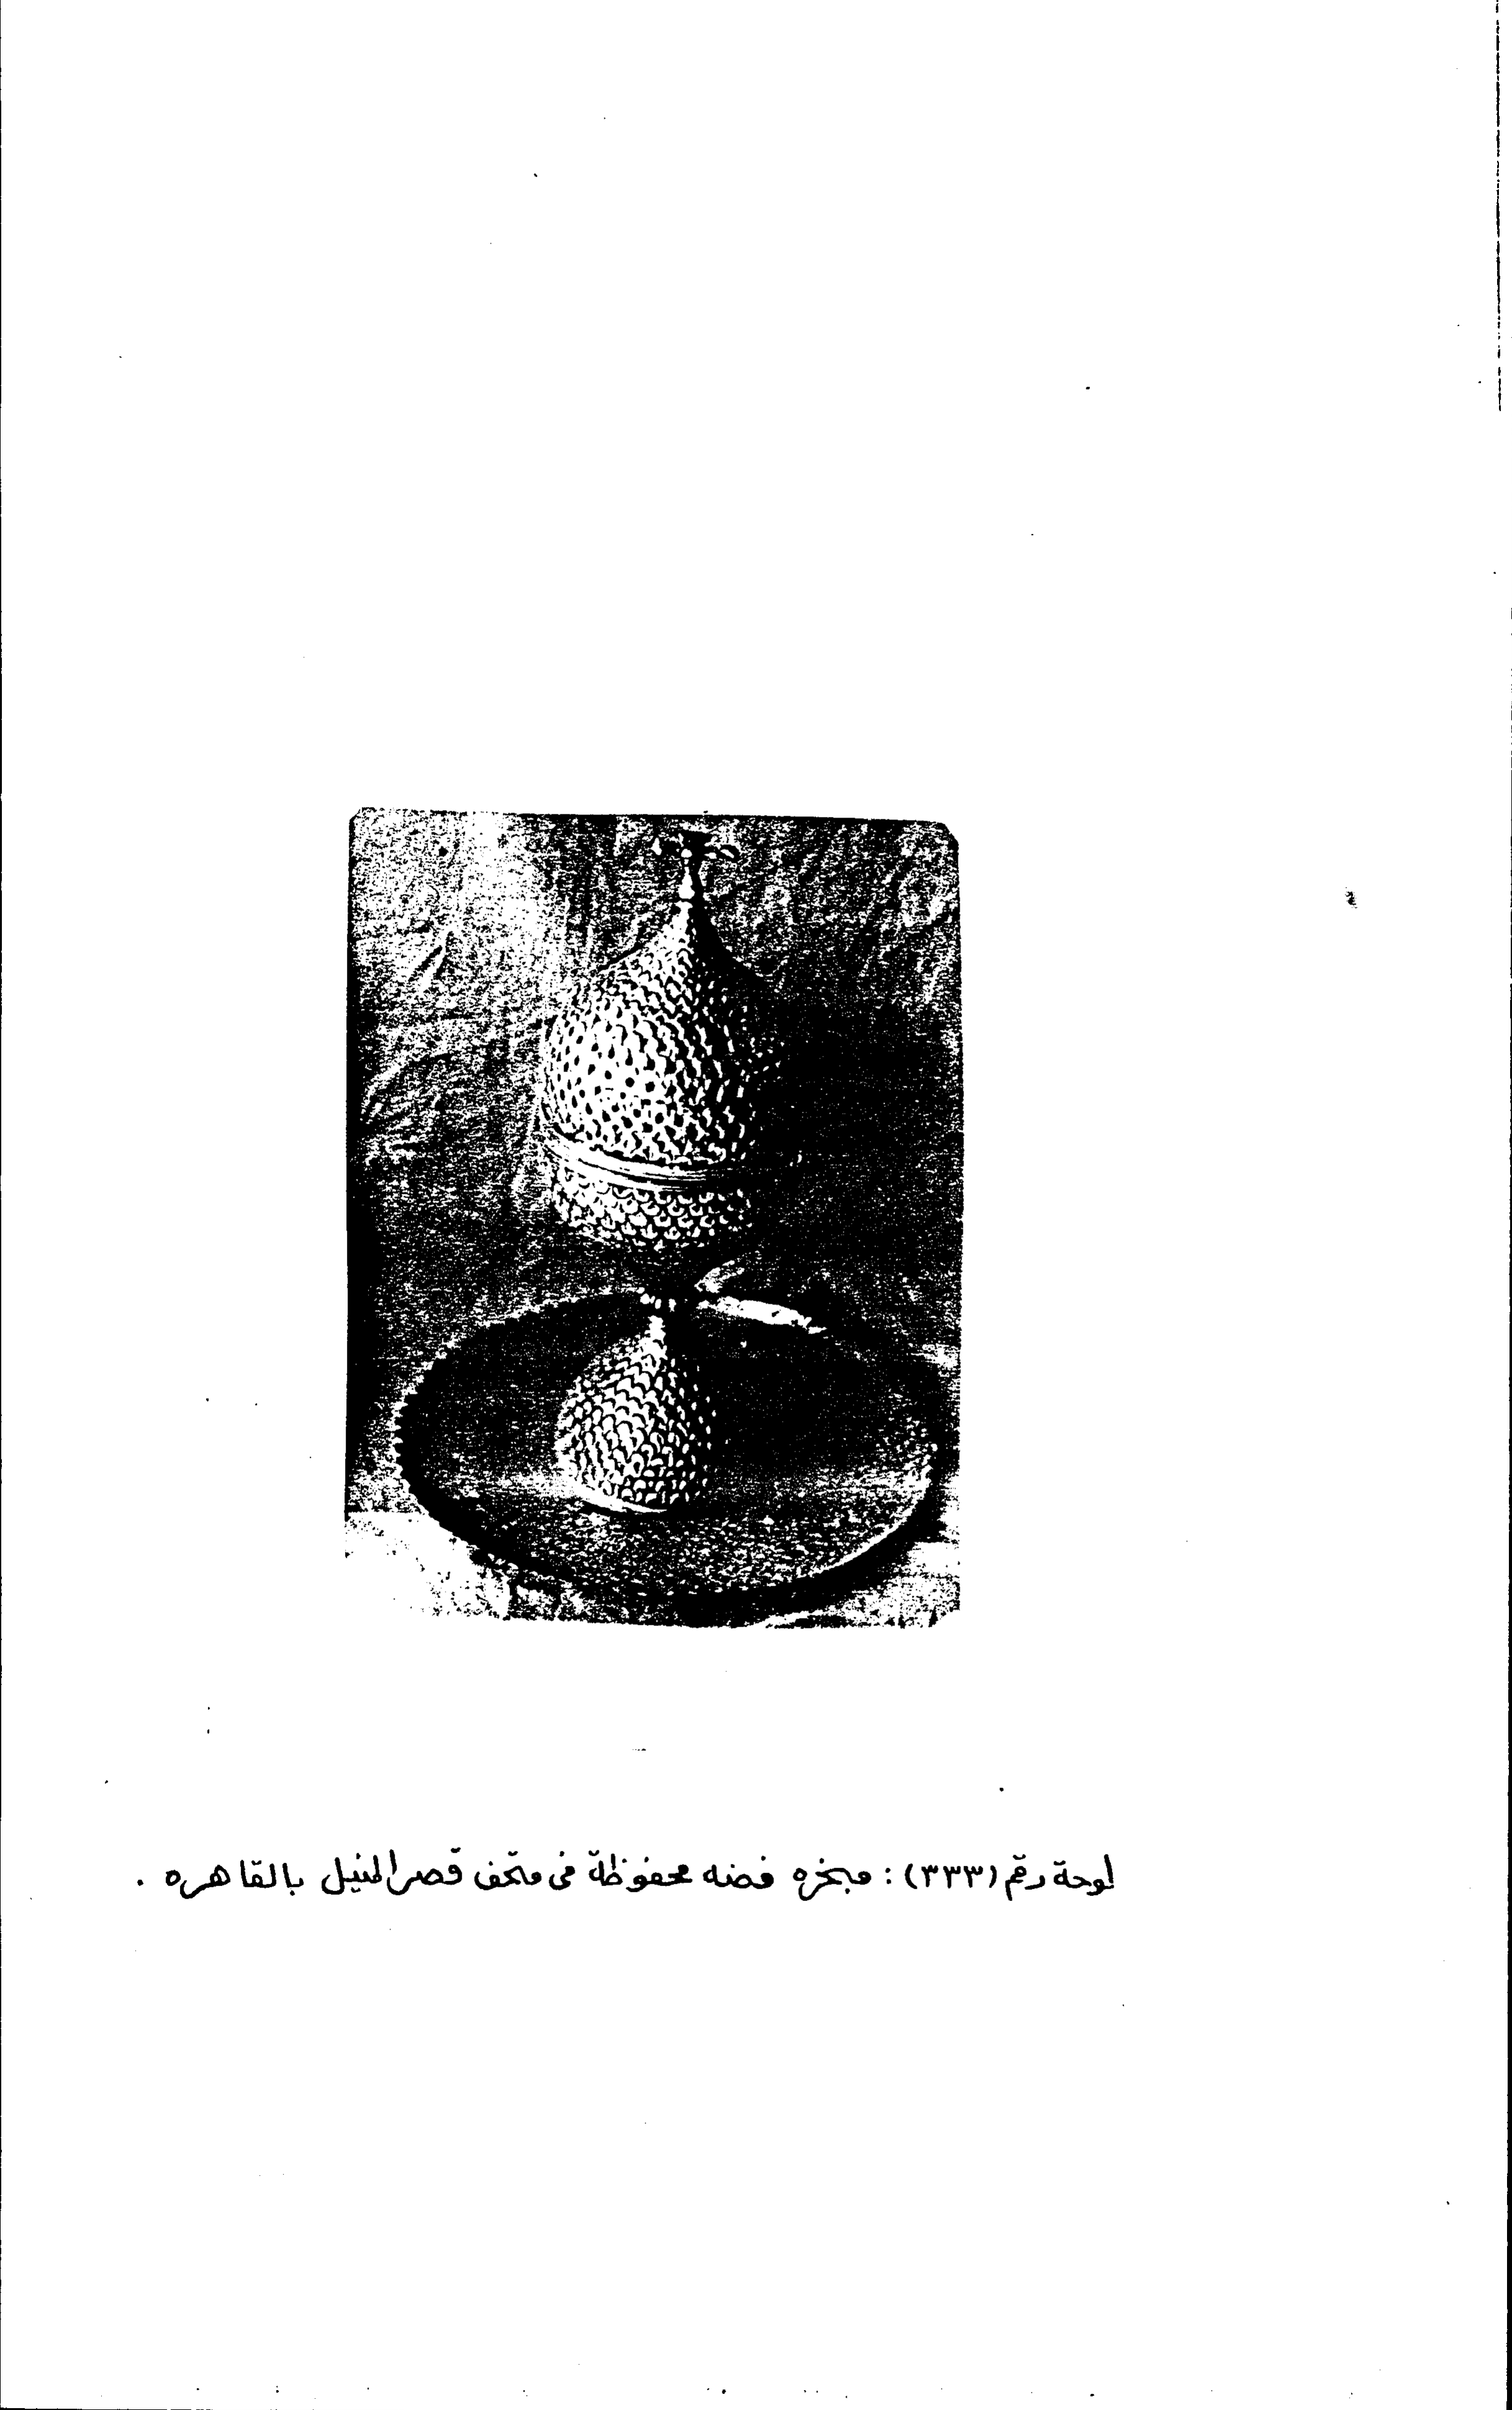 لوحة رقم (٣٣٣) : مبخره فضه محفوظة فى متحف قصر المنيل بالقاهره .